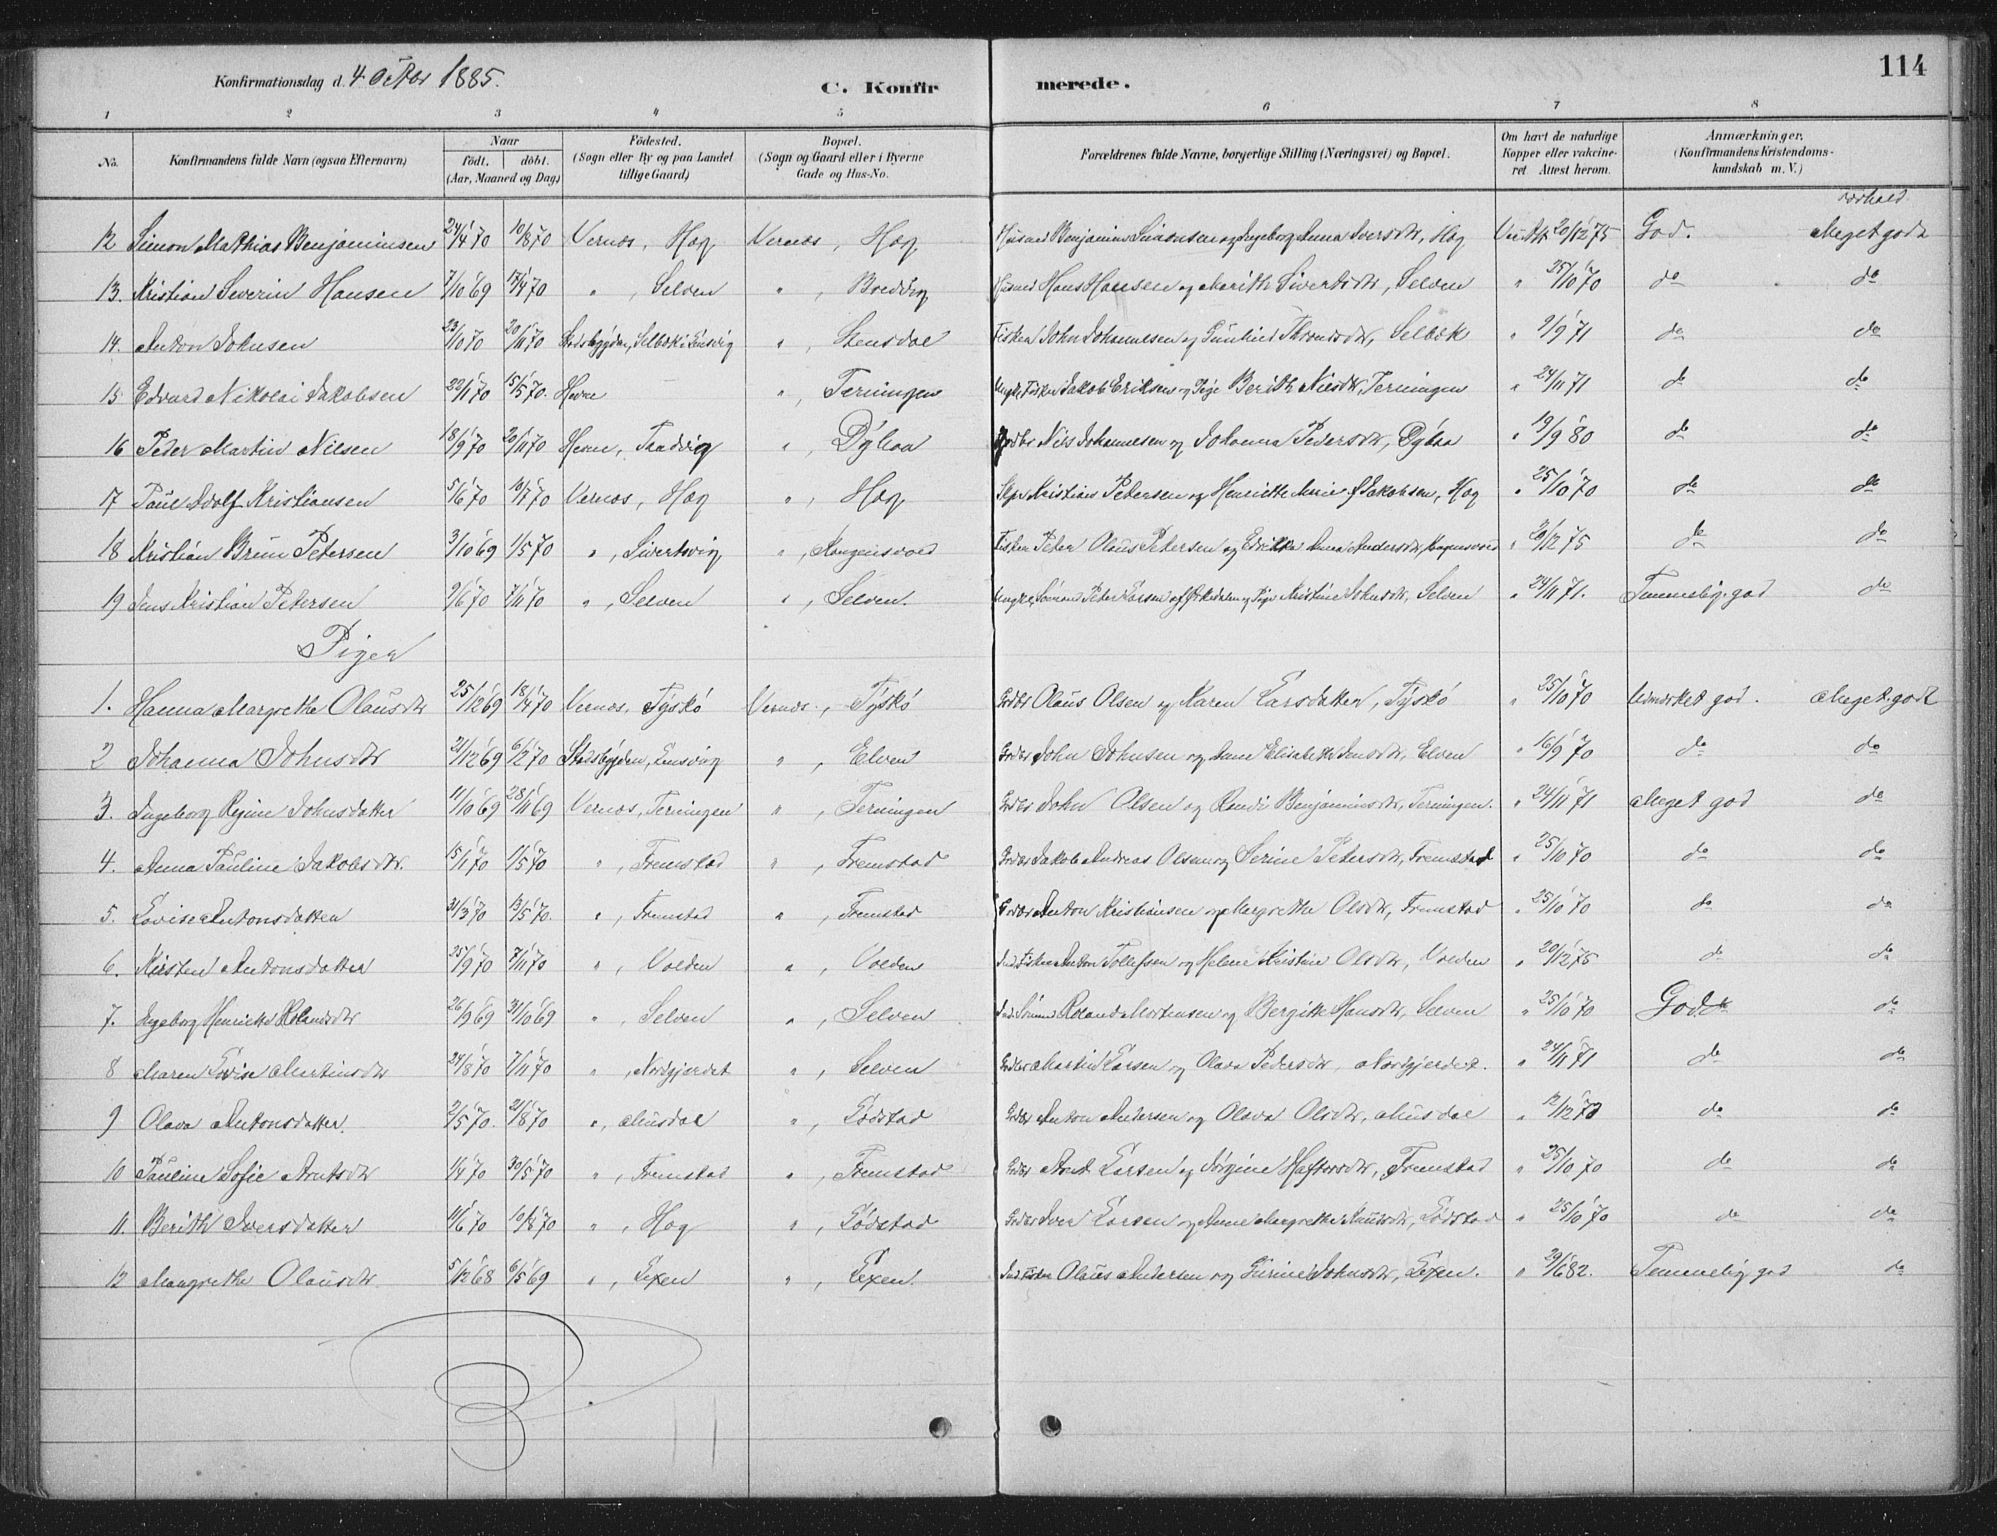 114
Konfirmationsdag d. 4 Octbr 1885.
C. Konfirmerede.
1 2 3 4 5 6 7 8
No. Konfirmandens fulde Navn (ogsaa Efternavn) Naar født. døbt. (Aar, Maaned og Dag) Fødested. (Sogn eller By og paa Landet tillige Gaard) Bopæl. (Sogn og Gaard eller i Byerne Gade og Hus-No. Forældrenes fulde Navne, borgerlige Stilling (Næringsvei) og Bopæl. Om havt de naturlige Kopper eller vakcineret Attest herom. Anmærkninger. (Konfirmandens Kristendomskundskab m. V.)
12 Simon Mathias Benjaminsen 24/4 70 10/8 70 Vernæs, Hog Vernæs, Hog Husmd Benjamin Simonsen og Ingeborg Anna Iversdtr, Hog 20/12 75 God. Meget godt
13. Kristian Severin Hansen 7/10 69 17/4 70 " , Selven " , Husmd Hans Hansen og Marith Sivertsdtr, Selven " 25/10 70 do do
14. Anton Johnsen 23/10 70 20/11 70 Stadsbygden, Selbæk i Lensvig " , Stensdal Fisker John Johannesen og Gunhild Throndsdtr, Selbæk " 9/9 71 do do
15 Edvard Nikolai Jakobsen 22/1 70 15/5 70. Hevne " , Terningen Ungk. Fisker Jakob Eriksen og Pige Berith Nilsdtr, Terningen " 24/11 71 do do
16 Peder Martin Nilsen 18/9 70 20/11 70 Hevne, Taadvig " , Dylaa Nils Johannesen og Johanna Pedersdtr, Dylaa " 19/9 80 do do
17 Paul Adolf Kristiansen 5/6 70 10/7 70 Vernæs, Hog " , Hog Kristian Petersen og Henriette Marie f. Jakobsen, Hog " 25/10 70 do do
18 Kristian Brun Petersen 3/10 69 1/5 70 " , Sivertsvig " , Kongensvold Fisker Peter Olaus Petersen og Edvikka Anna Andersdtr, Kongensvold " 20/12 75 do do
19 Jens Kristian Petersen 9/6 70 7/11 70 " , Selven " , Selven. Ungk. Sømand Peter Larsen af Ørkedalen og Pige Kristine Johnsdtr, Selven " 24/11 71. Temmelig god do
Piger
1. Hanna Margrethe Olausdtr 25/12 69 18/4 70 Vernæs, Tyskø Vernæs, Tyskø Gdbr Olaus Olsen og Karen Larsdatter, Tyskø " 25/10 70 Udmærket god. Meget godt
2 Johanna Johnsdtr 21/12 69 6/2 70 Stadsbygden, Lensvig " , Elven Gdbr John Johnsen og Anne Elisabeth Jensdtr, Elven " 16/9 70 do do
3. Ingeborg Regine Johnsdatter 11/10 69 28/11 69 Vernæs, Terningen " , Terningen Gdbr John Olsen og Randi Benjaminsdtr, Terningen. " 24/11 71 Meget god do
4. Anna Pauline Jakobsdtr. 15/1 70 1/5 70 " , Fremstad " , Fremstad Gdbr Jakob Andreas Olsen og Serine Petersdtr, Fremstad " 25/10 70 do do
5. Lovise Antonsdatter 31/3 70 15/5 70. " , Fremstad " , Fremstad Gdbr Anton Kristiansen og Margrethe Olsdtr, Fremstad " 25/10 70 do do
6. Kirsten Antonsdatter 25/9 70 7/11 70 " , Volden " , Volden Ind. Fisker Anton Tollefsen og Helene Kristine Olsdtr, Volden " 20/12 75 do do
7. Ingeborg Henriette Rolandsdtr 26/9 69 31/10 69 " , Selven " , Selven Ind. Sømand Roland Mortensen og Bergitte Hansdtr, Selven " 25/10 70 God do
8 Maren Lovise Martinsdtr 24/8 70 7/11 70 " , Nordgjerdet " , Selven Gdbr Martin Larsen og Olava Pedersdtr, Nordgjerdet. " 24/11 71 do do
9 Olava Antonsdatter. 2/5 70. 21/8 70 " , Musdal " , Lødstad Gdbr Anton Andersen og Olava Olsdtr, Musdal " 12/12 70 do do
10 Pauline Sofie Arntsdtr 1/4 70 30/5 70 " , Fremstad " , Fremstad Gdbr Arnt Larsen og Jørgine Haftorsdtr, Fremstad " 25/10 70 do do
11. Berith Iversdatter 11/6 70 10/8 70 " , Hog " , Lødstad Gdbr Iver Larsen og Anne Margrethe Knudsdtr, Lødstad " 25/10 70 do do
12 Margrethe Olausdtr. 5/12 68 6/5 69 " , Lexen " , Lexen. Ind. Fisker Olaus Andersen og Gurine Johnsdtr, Lexen. " 29/6 82. Temmelig god do